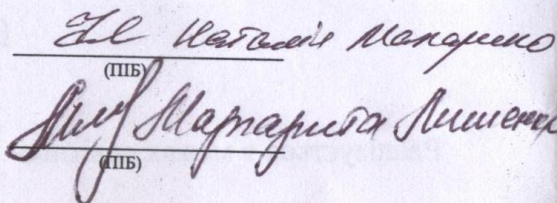 Наталія Макаренко
(ПІБ)
Маргарита Лишенко
(ПІБ)